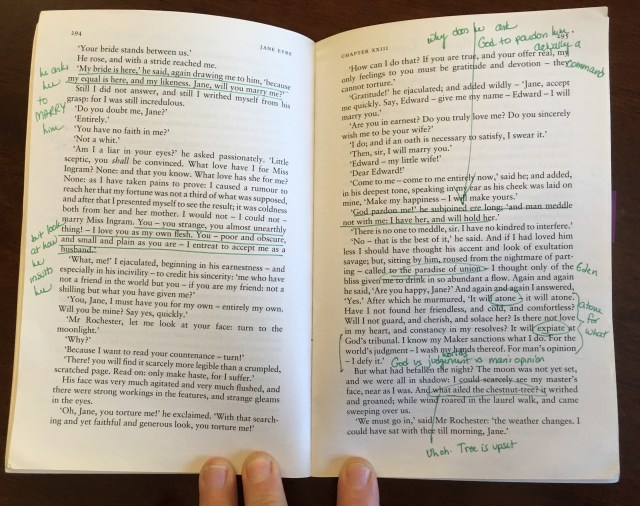 294
JANE EYRE
'Your bride stands between us.'
He rose, and with a stride reached me.
'My bride is here,' he said, again drawing me to him, 'because
my equal is here, and my likeness. Jane, will you marry me?'
Still I did not answer, and still I writhed myself from his
grasp: for I was still incredulous.
'Do you doubt me, Jane?'
'Entirely.'
'You have no faith in me?'
'Not a whit.'
'Am I a liar in your eyes?' he asked passionately. 'Little
sceptic, you shall be convinced. What love have I for Miss
Ingram? None: and that you know. What love has she for me?
None: as I have taken pains to prove: I caused a rumour to
reach her that my fortune was not a third of what was supposed,
and after that I presented myself to see the result; it was coldness
both from her and her mother. I would not – I could not –
marry Miss Ingram. You – you strange, you almost unearthly
thing! – I love you as my own flesh. You – poor and obscure,
and small and plain as you are – I entreat to accept me as a
husband.'
'What, me!' I ejaculated, beginning in his earnestness – and
especially in his incivility – to credit his sincerity: 'me who have
not a friend in the world but you – if you are my friend: not a
shilling but what you have given me?'
'You, Jane, I must have you for my own – entirely my own.
Will you be mine? Say yes, quickly.'
'Mr Rochester, let me look at your face: turn to the
moonlight.'
'Why?'
'Because I want to read your countenance – turn!'
'There! you will find it scarcely more legible than a crumpled,
scratched page. Read on: only make haste, for I suffer.'
His face was very much agitated and very much flushed, and
there were strong workings in the features, and strange gleams
in the eyes.
'Oh, Jane, you torture me!' he exclaimed. 'With that search-
ing and yet faithful and generous look, you torture me!'
he asks
her
to
MARRY
him
but look
at how
he
insults
her
CHAPTER XXIII
295
why does he ask
God to pardon him.
actually a
command
'How can I do that? If you are true, and your offer real, my
only feelings to you must be gratitude and devotion – they
cannot torture.'
'Gratitude!' he ejaculated; and added wildly – 'Jane, accept
me quickly. Say, Edward – give me my name – Edward – I will
marry you.'
'Are you in earnest? Do you truly love me? Do you sincerely
wish me to be your wife?'
'I do; and if an oath is necessary to satisfy, I swear it.'
'Then, sir, I will marry you.'
'Edward – my little wife!'
'Dear Edward!'
'Come to me – come to me entirely now,' said he; and added,
in his deepest tone, speaking in my ear as his cheek was laid on
mine, 'Make my happiness – I will make yours.'
'God pardon me!' he subjoined ere long; 'and man meddle
not with me: I have her, and will hold her.'
'There is no one to meddle, sir. I have no kindred to interfere.'
'No – that is the best of it,' he said. And if I had loved him
less I should have thought his accent and look of exultation
savage; but, sitting by him, roused from the nightmare of part-
ing – called to the paradise of union – I thought only of the
bliss given me to drink in so abundant a flow. Again and again
he said, 'Are you happy, Jane?' And again and again I answered,
'Yes.' After which he murmured, 'It will atone – it will atone.
Have I not found her friendless, and cold, and comfortless?
Will I not guard, and cherish, and solace her? Is there not love
in my heart, and constancy in my resolves? It will expiate at
God's tribunal. I know my Maker sanctions what I do. For the
world's judgment – I wash my hands thereof. For man's opinion
– I defy it.'
Eden
atone
for
what
God vs judgment vs man's opinion
But what had befallen the night? The moon was not yet set,
and we were all in shadow: I could scarcely see my master's
face, near as I was. And what ailed the chestnut-tree? it writhed
and groaned; while wind roared in the laurel walk, and came
sweeping over us.
'We must go in,' said Mr Rochester: 'the weather changes. I
could have sat with thee till morning, Jane.'
uh oh. Tree is upset